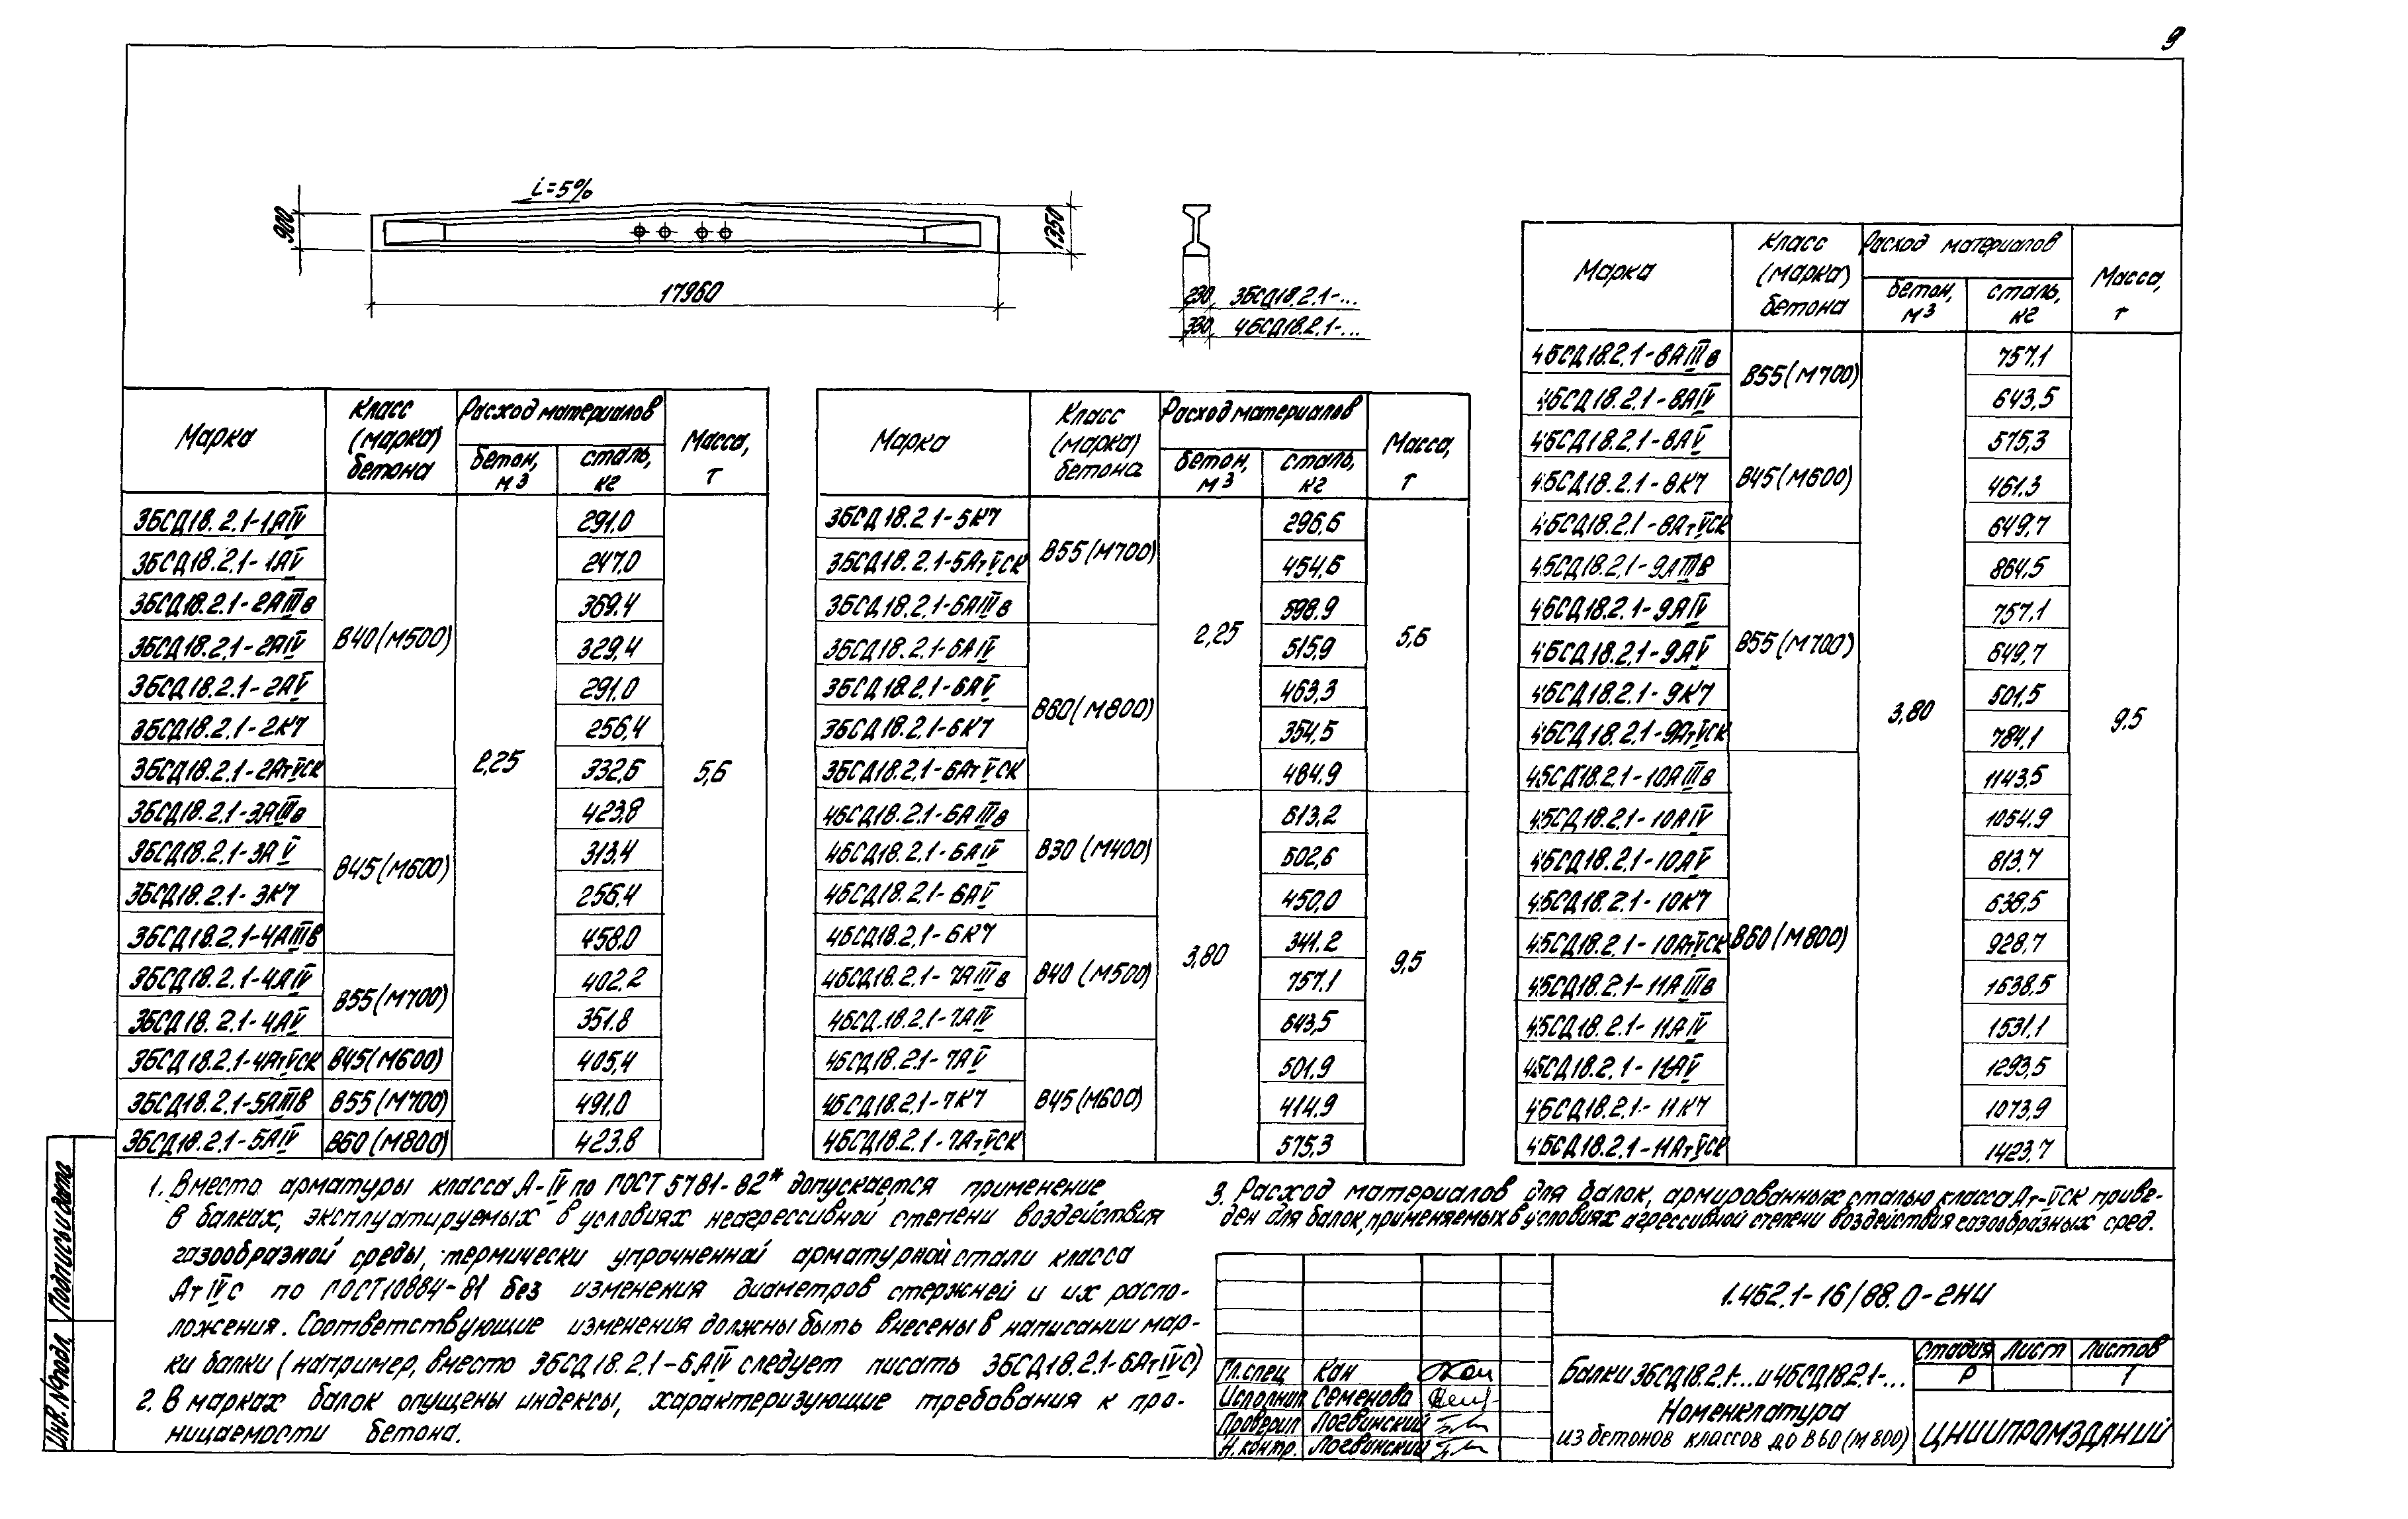 9
i=5%
900
1350
17960
230 3БСД18.2.1-...
330 4БСД18.2.1-...
Марка Класс (марка) бетона Расход материалов Масса, т
бетон, м3 сталь, кг
3БСД18.2.1-1АIV В40(М500) 291.0
3БСД18.2.1-1АV 247.0
3БСД18.2.1-2АIIIв 369.4
3БСД18.2.1-2АIV 329.4
3БСД18.2.1-2АV 291.0
3БСД18.2.1-2К7 256,4
3БСД18.2.1-2АтVСК 2,25 332,6 5,6
3БСД18.2.1-3АIIIв В45(М600) 423,8
3БСД18.2.1-3АV 313,4
3БСД18.2.1-3К7 256,4
3БСД18.2.1-4АIIIв 458.0
3БСД18.2.1-4АIV В55(М700) 402.2
3БСД18.2.1-4АV 351.8
3БСД18.2.1-4АтVСК В45(М600) 405,4
3БСД18.2.1-5АIIIв В55(М700) 491.0
3БСД18.2.1-5АIV В60(М800) 423.8
Марка Класс (марка) бетона Расход материалов Масса, т
бетон, м3 сталь, кг
3БСД18.2.1-5К7 В55(М700) 296,6
3БСД18.2.1-5АтVСК 454,6
3БСД18.2.1-6АIIIв 598.9
3БСД18.2.1-6АIV 2,25 515,9 5,6
3БСД18.2.1-6АV В60(М800) 463,3
3БСД18.2.1-6К7 354,5
3БСД18.2.1-6АтVСК 464,9
4БСД18.2.1-6АIIIв В30 (М400) 613,2
4БСД18.2.1-6АIV 502,6
4БСД18.2.1-6АV 450,0
4БСД18.2.1-6К7 В40 (М500) 3,80 341.2 9,5
4БСД18.2.1-7АIIIв 757.1
4БСД.18.2.1-7АIV 643,5
4БСД18.2.1-7АV В45(М600) 501.9
4БСД18.2.1-7К7 414,9
4БСД18.2.1-7АтVСК 575,3
Марка Класс (марка) бетона Расход материалов Масса, т
бетон, м3 сталь, кг
4БСД18.2.1-8АIIIв В55(М700) 757,1
4БСД18.2.1-8АIV 643,5
4БСД18.2.1-8АV В45(М600) 575,3
4БСД18.2.1-8К7 461.3
4БСД18.2.1-8АтVСК 649,7
4БСД18.2.1-9АIIIв В55(М700) 864,5
4БСД18.2.1-9АIV 757,1
4БСД18.2.1-9АV 649,7
4БСД18.2.1-9К7 3,80 501,5 9,5
4БСД18.2.1-9АтVСК 784,1
4БСД18.2.1-10АIIIв В60(М800) 1143,5
4БСД18.2.1-10АIV 1054.9
4БСД18.2.1-10АV 813.7
4БСД18.2.1-10К7 638,5
4БСД18.2.1-10АтVСК 928,7
4БСД18.2.1-11АIIIв 1638,5
4БСД18.2.1-11АIV 1531.1
4БСД18.2.1-11АV 1293,5
4БСД18.2.1-11К7 1073,9
4БСД18.2.1-11АтVСК 1423.7
1. Вместо арматуры класса А-IV по ГОСТ 5781-82* допускается применение
в балках, эксплуатируемых в условиях неагрессивной степени воздействия
газообразной среды, термически упрочненной арматурной стали класса
АтIVС по ГОСТ10884-81 без изменения диаметров стержней и их распо-
ложения. Соответствующие изменения должны быть внесены в написании мар-
ки балки (например, вместо 3БСД18.2.1-6АIV следует писать 3БСД18.2.1-6АтIVС)
2. В марках балок опущены индексы, характеризующие требования к про-
ницаемости бетона.
3. Расход материалов для балок, армированных сталью класса Ат-VСК приве-
ден для балок, применяемых в условиях агрессивной степени воздействия газообразных сред.
1.462.1-16/88.0-2НИ
Балки 3БСД18.2.1-... и 4БСД18.2.1-...
Номенклатура
из бетонов классов до В60 (М800)
Стадия Лист Листов
Р 1
ЦНИИПРОМЗДАНИЙ
Гл.спец Кан
Исполнил Семенова
Проверил Логвинский
Н.контр. Логвинский
Инв.№подл. Подпись и дата